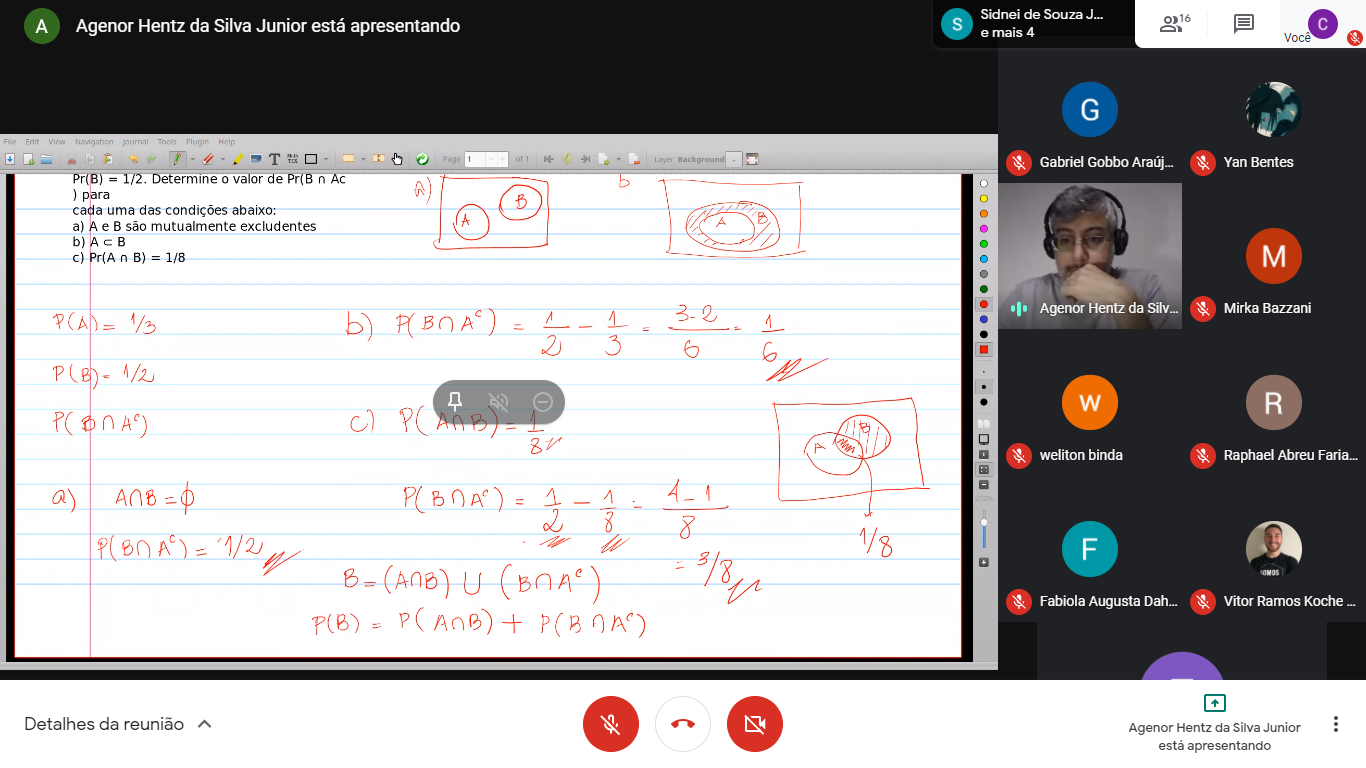 A
Agenor Hentz da Silva Junior está apresentando
S
Sidnei de Souza J...
e mais 4
16
Você
C
File Edit View Navigation Journal Tools Plugin Help
Page 1 of 1
Layer Background
Pr(B) = 1/2. Determine o valor de Pr(B ∩ Ac
) para
cada uma das condições abaixo:
a) A e B são mutualmente excludentes
b) A ⊂ B
c) Pr(A ∩ B) = 1/8
a)
A
B
b
A
B
P(A) = 1/3
P(B) = 1/2
P(B∩A^c)
a) A∩B = ϕ
P(B∩A^c) = 1/2
b) P(B∩A^c) = 1/2 - 1/3 = 3-2/6 = 1/6
c) P(A∩B) = 1/8
P(B∩A^c) = 1/2 - 1/8 = 4-1/8
= 3/8
A
B
1/8
B = (A∩B) ∪ (B∩A^c)
P(B) = P(A∩B) + P(B∩A^c)
200%
G
Gabriel Gobbo Araúj...
Yan Bentes
Agenor Hentz da Silv...
M
Mirka Bazzani
w
weliton binda
R
Raphael Abreu Faria...
F
Fabiola Augusta Dah...
SOMOS
Vitor Ramos Koche ...
Detalhes da reunião
Agenor Hentz da Silva Junior
está apresentando